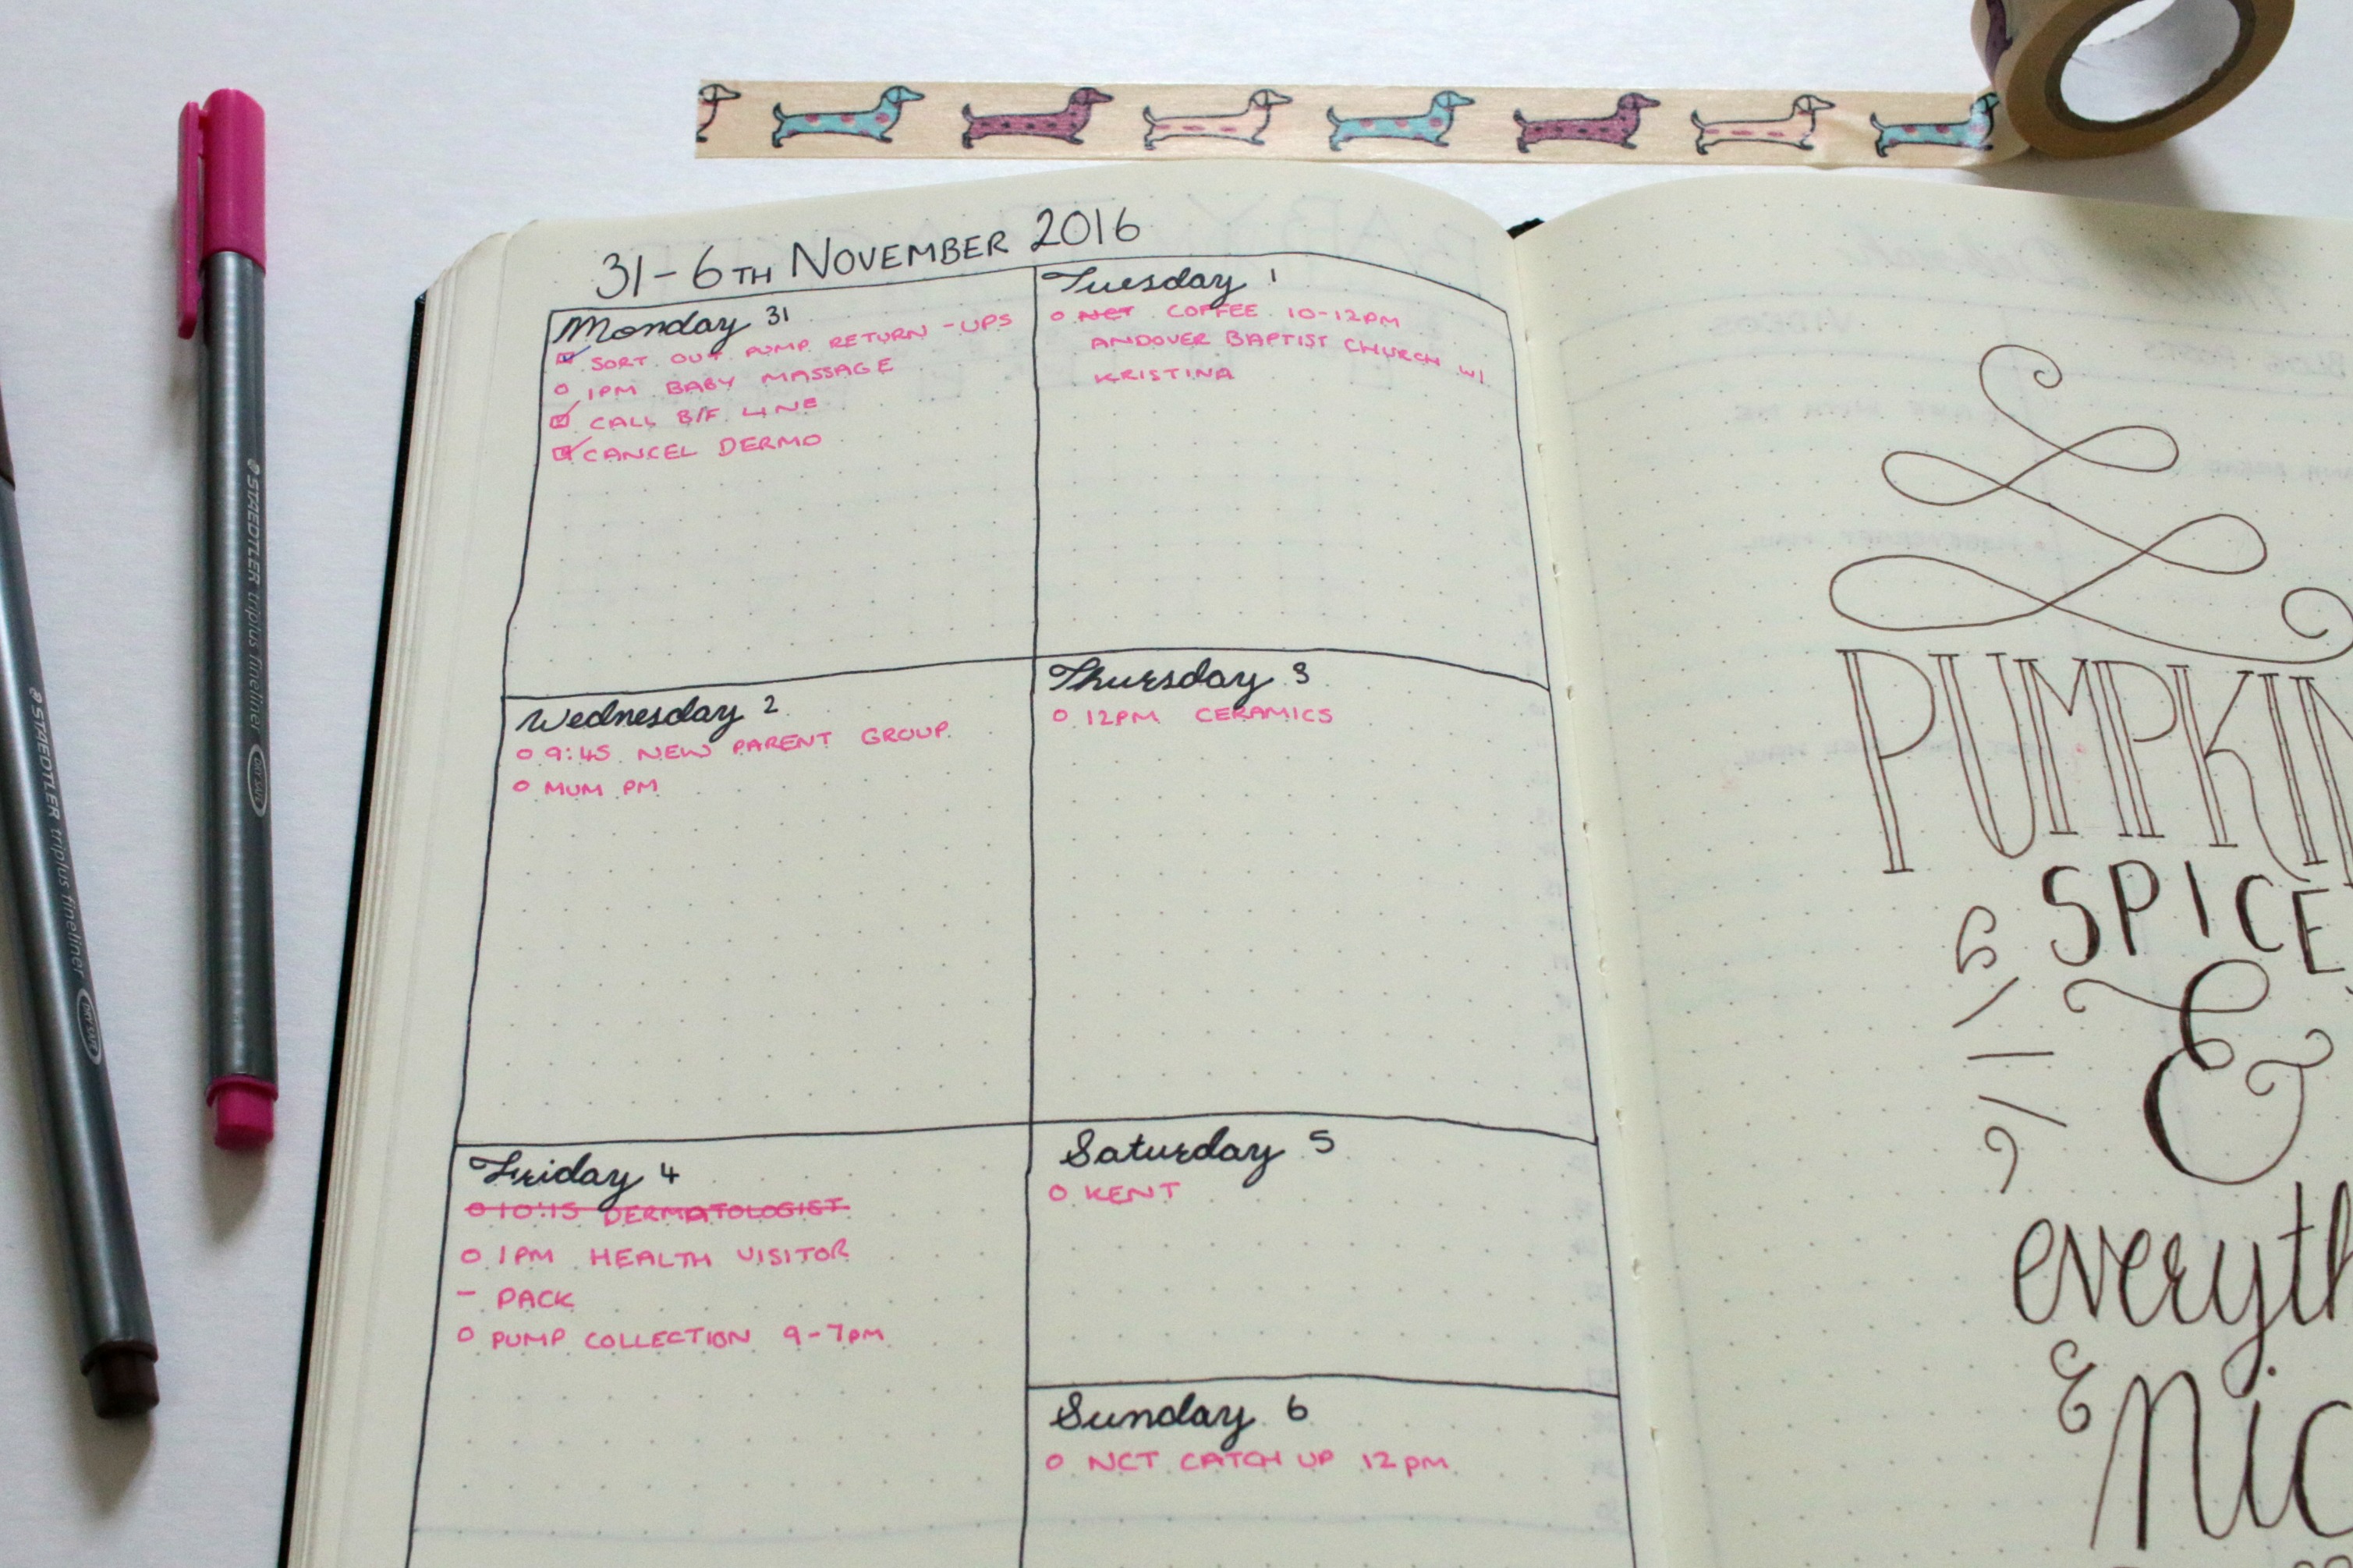 31-6TH NOVEMBER 2016
Monday 31
SORT OUT PUMP RETURN - UPS
1PM BABY MASSAGE
CALL B/F LINE
CANCEL DERMO
Tuesday 1
NCT COFFEE 10-12PM
ANDOVER BAPTIST CHURCH W/
KRISTINA
Wednesday 2
9:45 NEW PARENT GROUP
MUM PM
Thursday 3
12PM CERAMICS
Friday 4
10:15 DERMATOLOGIST
1PM HEALTH VISITOR
- PACK
PUMP COLLECTION 9-7PM
Saturday 5
KENT
Sunday 6
NCT CATCH UP 12PM
PUMPKIN
SPICE
&
everyth
& Nic
STAEDTLER triplus fineliner
DRY SAFE
STAEDTLER triplus fineliner
DRY SAFE